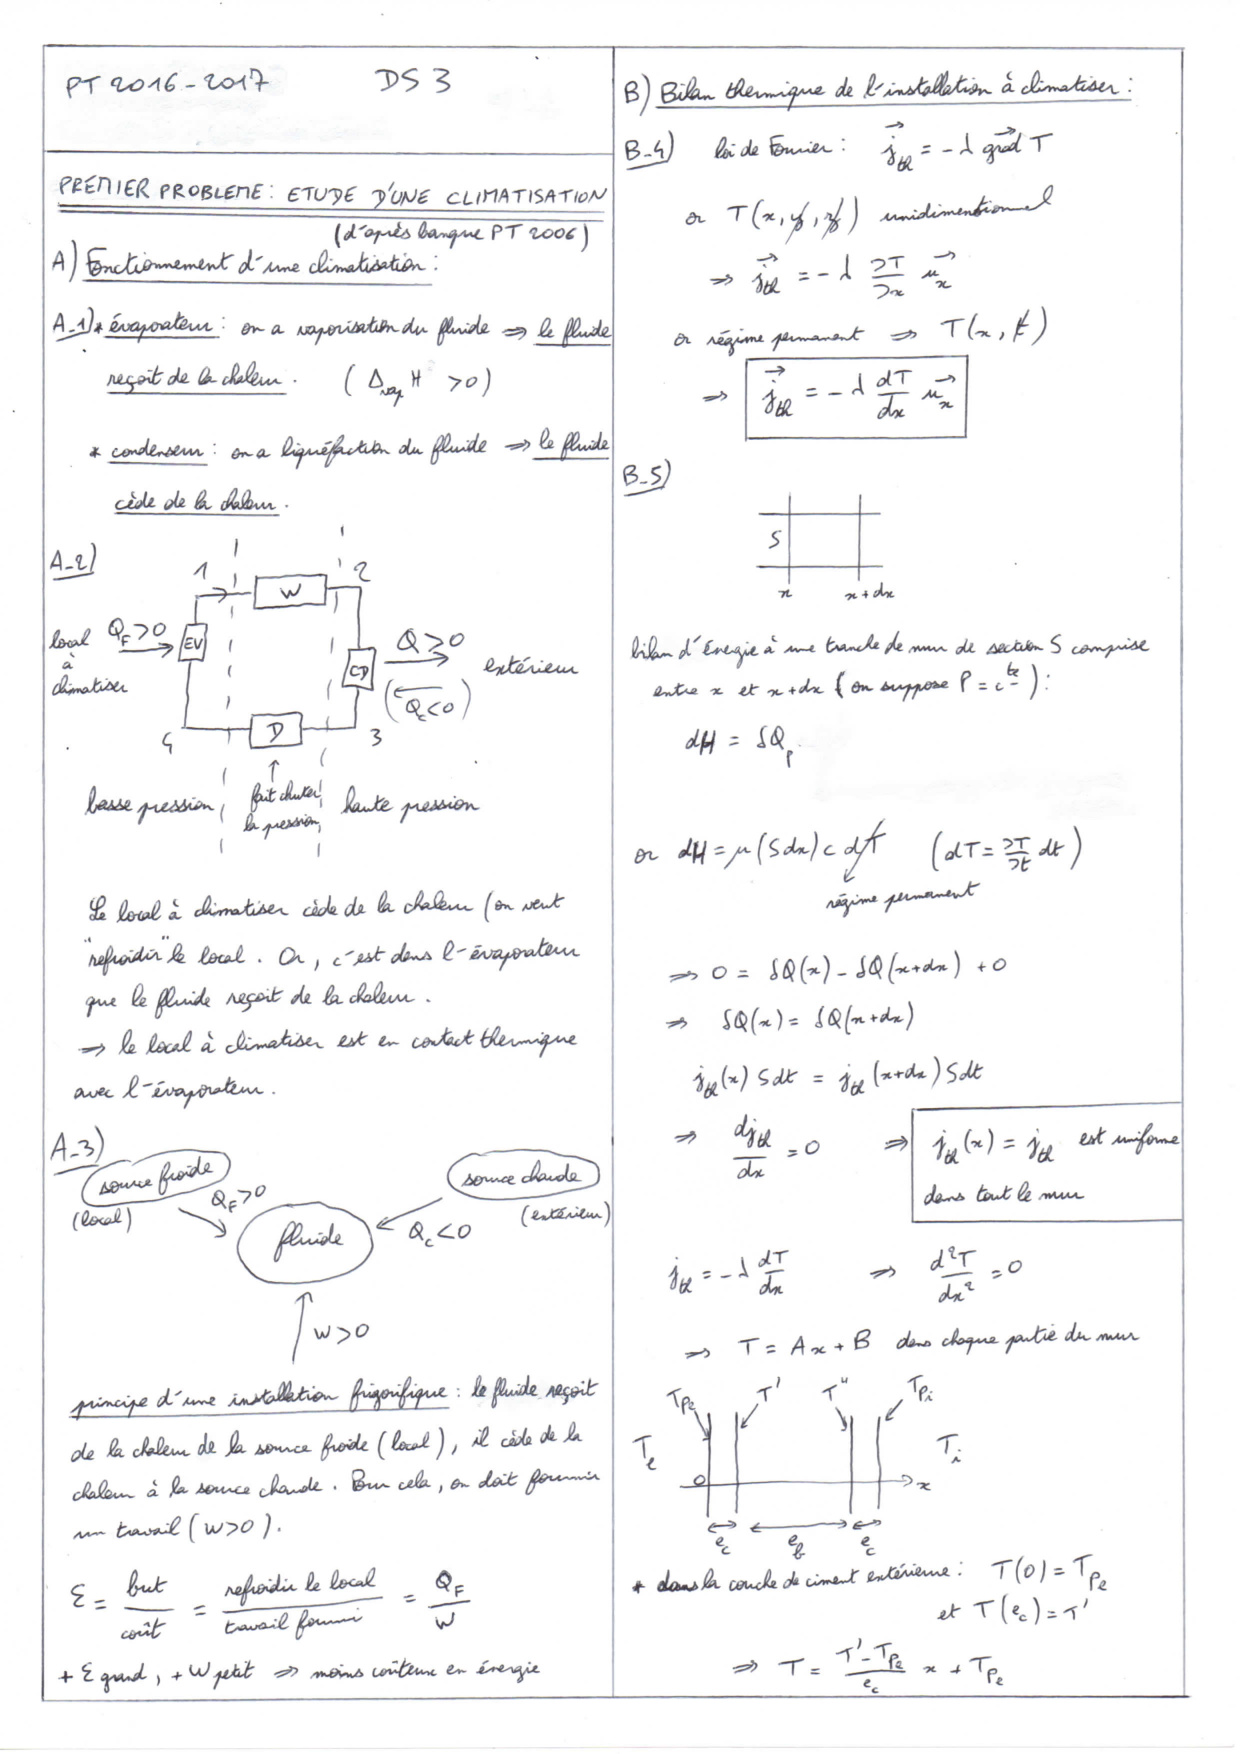 PT 2016-2017 DS 3
PREMIER PROBLEME : ETUDE D'UNE CLIMATISATION
(d'après banque PT 2006)
A) Fonctionnement d'une climatisation :
A_1) * évaporateur : on a vaporisation du fluide ⇒ le fluide
reçoit de la chaleur. (Δvap H > 0)
* condenseur : on a liquéfaction du fluide ⇒ le fluide
cède de la chaleur.
A_2)
1 W 2
local à climatiser
Q_F > 0
EV
CD
Q > 0
(Q_c < 0)
extérieur
4 D 3
basse pression
fait chuter la pression
haute pression
Le local à climatiser cède de la chaleur (on veut
"refroidir" le local. Or, c'est dans l'évaporateur
que le fluide reçoit de la chaleur.
⇒ le local à climatiser est en contact thermique
avec l'évaporateur.
A_3)
source froide
(local)
Q_F > 0
fluide
source chaude
(extérieur)
Q_c < 0
W > 0
principe d'une installation frigorifique : le fluide reçoit
de la chaleur de la source froide (local), il cède de la
chaleur à la source chaude. Pour cela, on doit fournir
un travail (W > 0).
ε = but / coût = refroidir le local / travail fourni = Q_F / W
+ ε grand, + W petit ⇒ moins coûteux en énergie
B) Bilan thermique de l'installation à climatiser :
B_4) loi de Fourier : j_th = - λ grad T
or T(x, y, z) unidimentionnel
⇒ j_th = - λ ∂T/∂x u_x
or régime permanent ⇒ T(x, t)
⇒ j_th = - λ dT/dx u_x
B_5)
S
x x+dx
bilan d'énergie à une tranche de mur de section S comprise
entre x et x+dx (on suppose P = cte) :
dH = δQ_p
or dH = μ (S dx) c dT (dT = ∂T/∂t dt)
régime permanent
⇒ 0 = δQ(x) - δQ(x+dx) + 0
⇒ δQ(x) = δQ(x+dx)
j_th(x) S dt = j_th(x+dx) S dt
⇒ dj_th/dx = 0 ⇒ j_th(x) = j_th est uniforme
dans tout le mur
j_th = - λ dT/dx ⇒ d²T/dx² = 0
⇒ T = Ax + B dans chaque partie du mur
T_pe T' T" T_pi
T_e T_i
O x
e_c e_b e_c
* dans la couche de ciment extérieure : T(0) = T_pe
et T(e_c) = T'
⇒ T = (T' - T_pe)/e_c x + T_pe